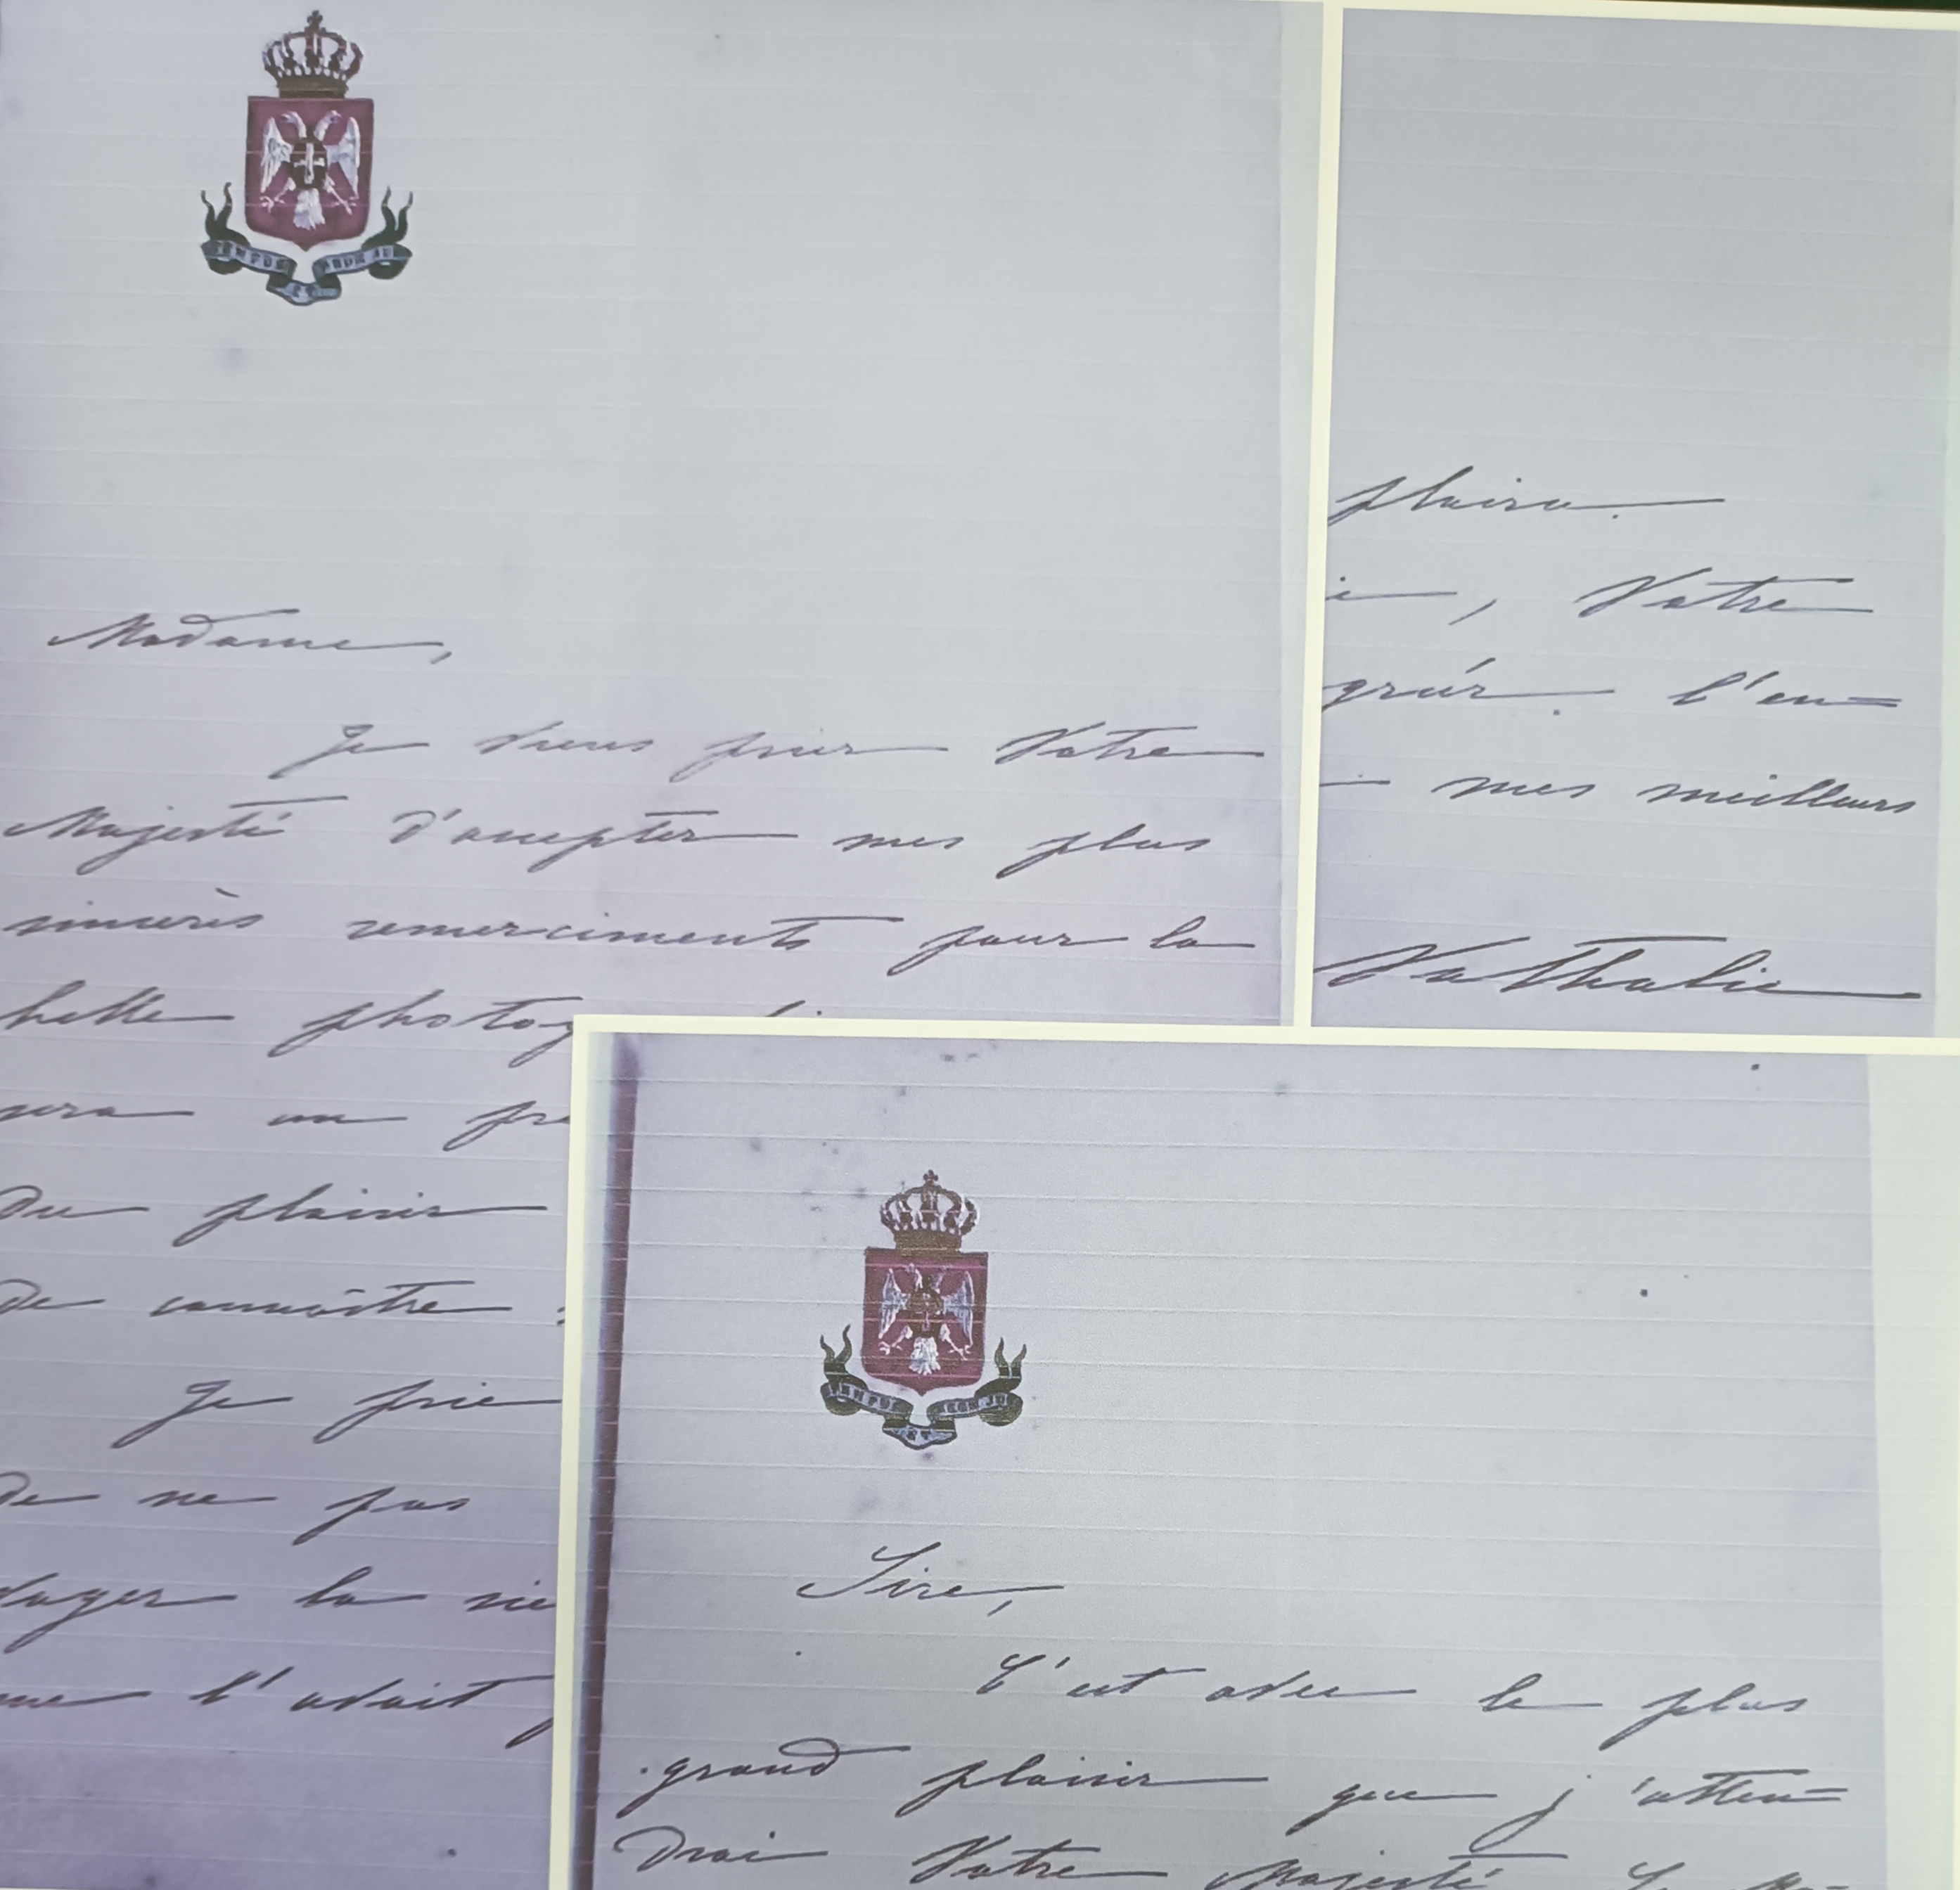 TEMPUS ET MEUM JUS
Madame,
Je viens prier Votre
Majesté d'accepter mes plus
sincerès remerciments pour la
belle photog
sera un
Du plaisir
De connaître
Je prie
De ne pas
la
l'avait
plaira.
, Votre
gréer l'en=
mes meilleurs
Nathalie
TEMPUS ET MEUM JUS
Sire,
C'est avec le plus
grand plaisir que j'atten=
Drai Votre Majesté